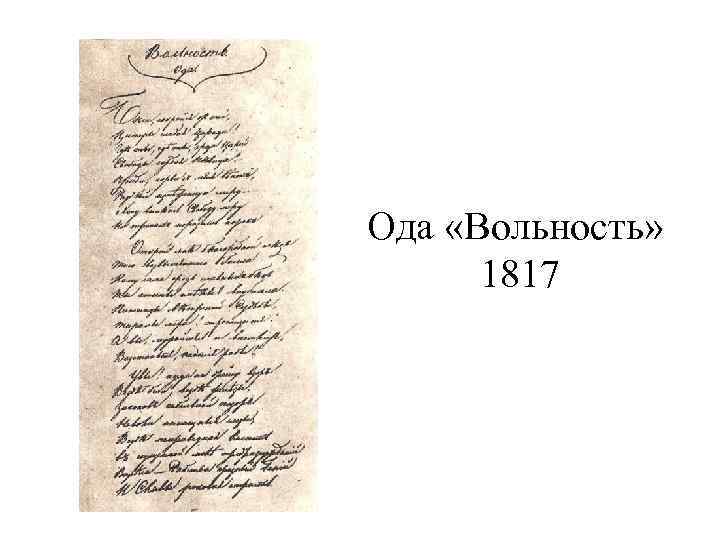 Вольность.
Ода.
Беги, сокройся от очей,
Цитеры слабая Царица!
Где ты, где ты, гроза Царей
Свободы гордая певица?
Приди, сорви с меня венок,
Разбей изнеженную лиру
Хочу воспеть Свободу миру
На тронах поразить порок
Открой мне благородный след
Того возвышенного Галла
Кому сама средь славных бед
Ты гимны смелые внушала.
Питомцы ветреной Судьбы,
Тираны мира! трепещите!
А вы, мужайтесь и внемлите,
Восстаньте, падшие рабы!
Увы! куда ни брошу взор
Везде бичи, везде железы,
Законов гибельный позор
Неволи немощные слезы;
Везде неправедная Власть
В сгущенной мгле предрассуждений
Воссела — Рабства грозный Гений
И Славы роковая страсть.
Ода «Вольность»
1817